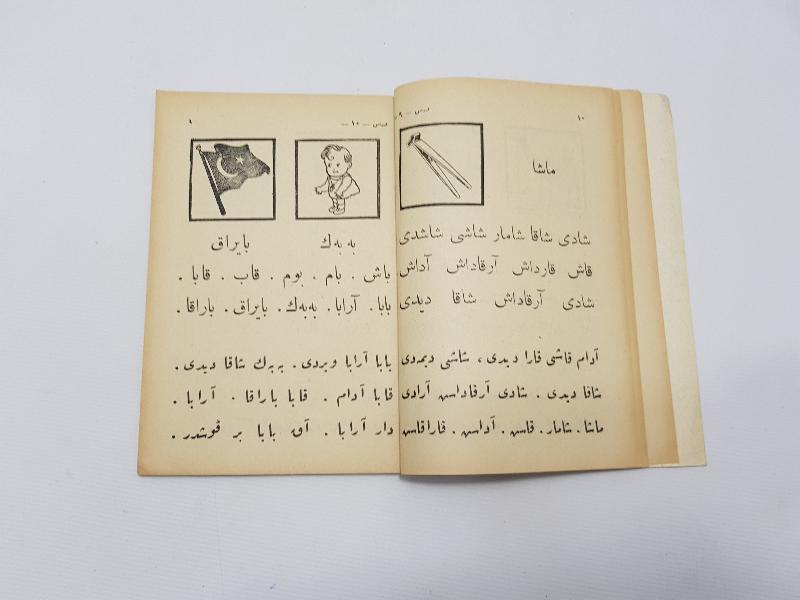 ١٠
درس — ٩ —
ماشا
شادی شاقا شامار شاشی شاشدی
قاش قارداش آرقاداش آداش
شادی آرقاداش شاقا دیدی
آدام قاشی قارا دیدی ، شاشی دیمه‌دی
شاقا دیدی . شادی آرقاداسن آرادی
ماشا . شامار . قاسن . آداسن . قاراقاسن
درس — ١٠ —
به به‌ك
بایراق
باش . بام . بوم . قاب . قابا .
بابا . آرابا . به‌به‌ك . بایراق . باراقا .
بابا آرابا ویردی . به‌به‌ك شاقا دیدی .
قابا آدام . قابا باراقا . آرابا .
دار آرابا . آق بابا بر قوشدر .